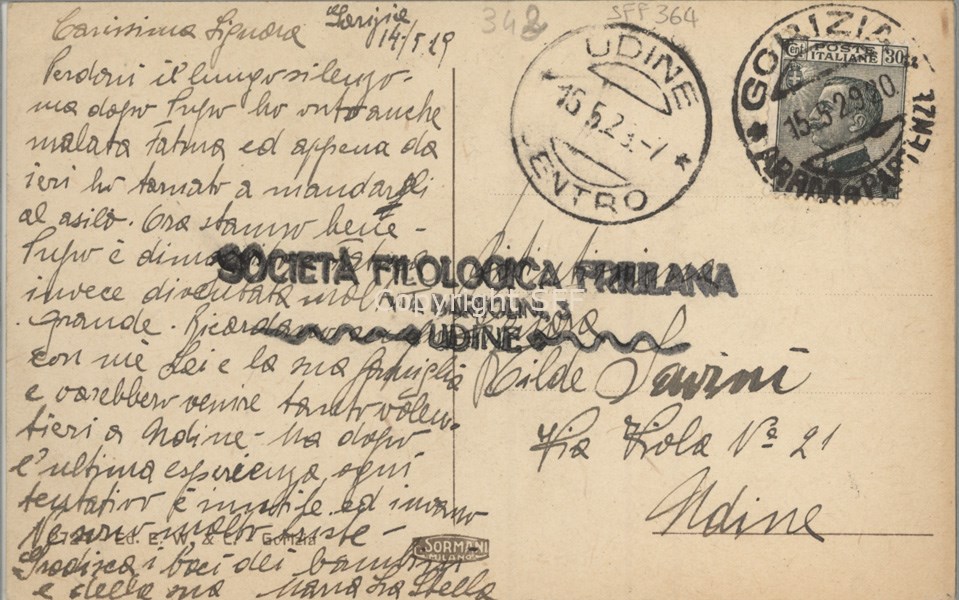 Gorizia
14/5.29
348
SFF 364
Carissima Signora
Perdoni il lungo silenzo-
ma dopo Pupo ho avuto anche
malata Fatma ed appena da
ieri ho tornato a mandargli
al asilo. Ora stanno bene-
Pupo è
invece diventata
grande. Ricordano
con mè Lei e la sua famiglia
e varebbero venire tanto volen-
tieri a Udine- Ma dopo
l'ultima esperienza, ogni
tentativo è inutile ed invano
Ne sono molto triste-
Gradisca i baci dei bambini
e della sua Maria La Stella
UDINE
15.5.29.-7
CENTRO
GORIZIA
15.5.29.20
ARRIVI PARTENZE
POSTE
ITALIANE
Cent 30
SOCIETÀ FILOLOGICA FRIULANA
UDINE
Copyright SFF
Signora
Rilde Savini
Via Viola Nº 21
Udine
Ed. E. W. & C. - Gorizia
SORMANI
MILANO